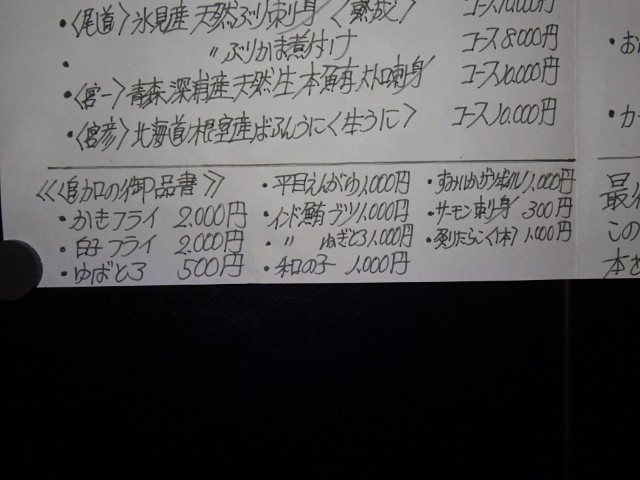 ・〈尾道〉氷見産天然ぶり刺身〈熟成〉 コース10,000円
・ 〃 ぶりかま煮付け コース8,000円
・〈宮一〉青森・深浦産天然生本鮪大トロ刺身 コース10,000円
・〈宮彦〉北海道・根室産ばふんうに〈生うに〉 コース10,000円
≪追加の御品書≫
・かきフライ 2,000円
・白子フライ 2,000円
・ゆばとろ 500円
・平目えんがわ 1,000円
・インド鮪ブツ 1,000円
・ 〃 ねぎとろ 1,000円
・和の子 1,000円
1,000円
・サーモン刺身 300円
たらこ(本) 1,000円
・お
・カ
最
この
本を